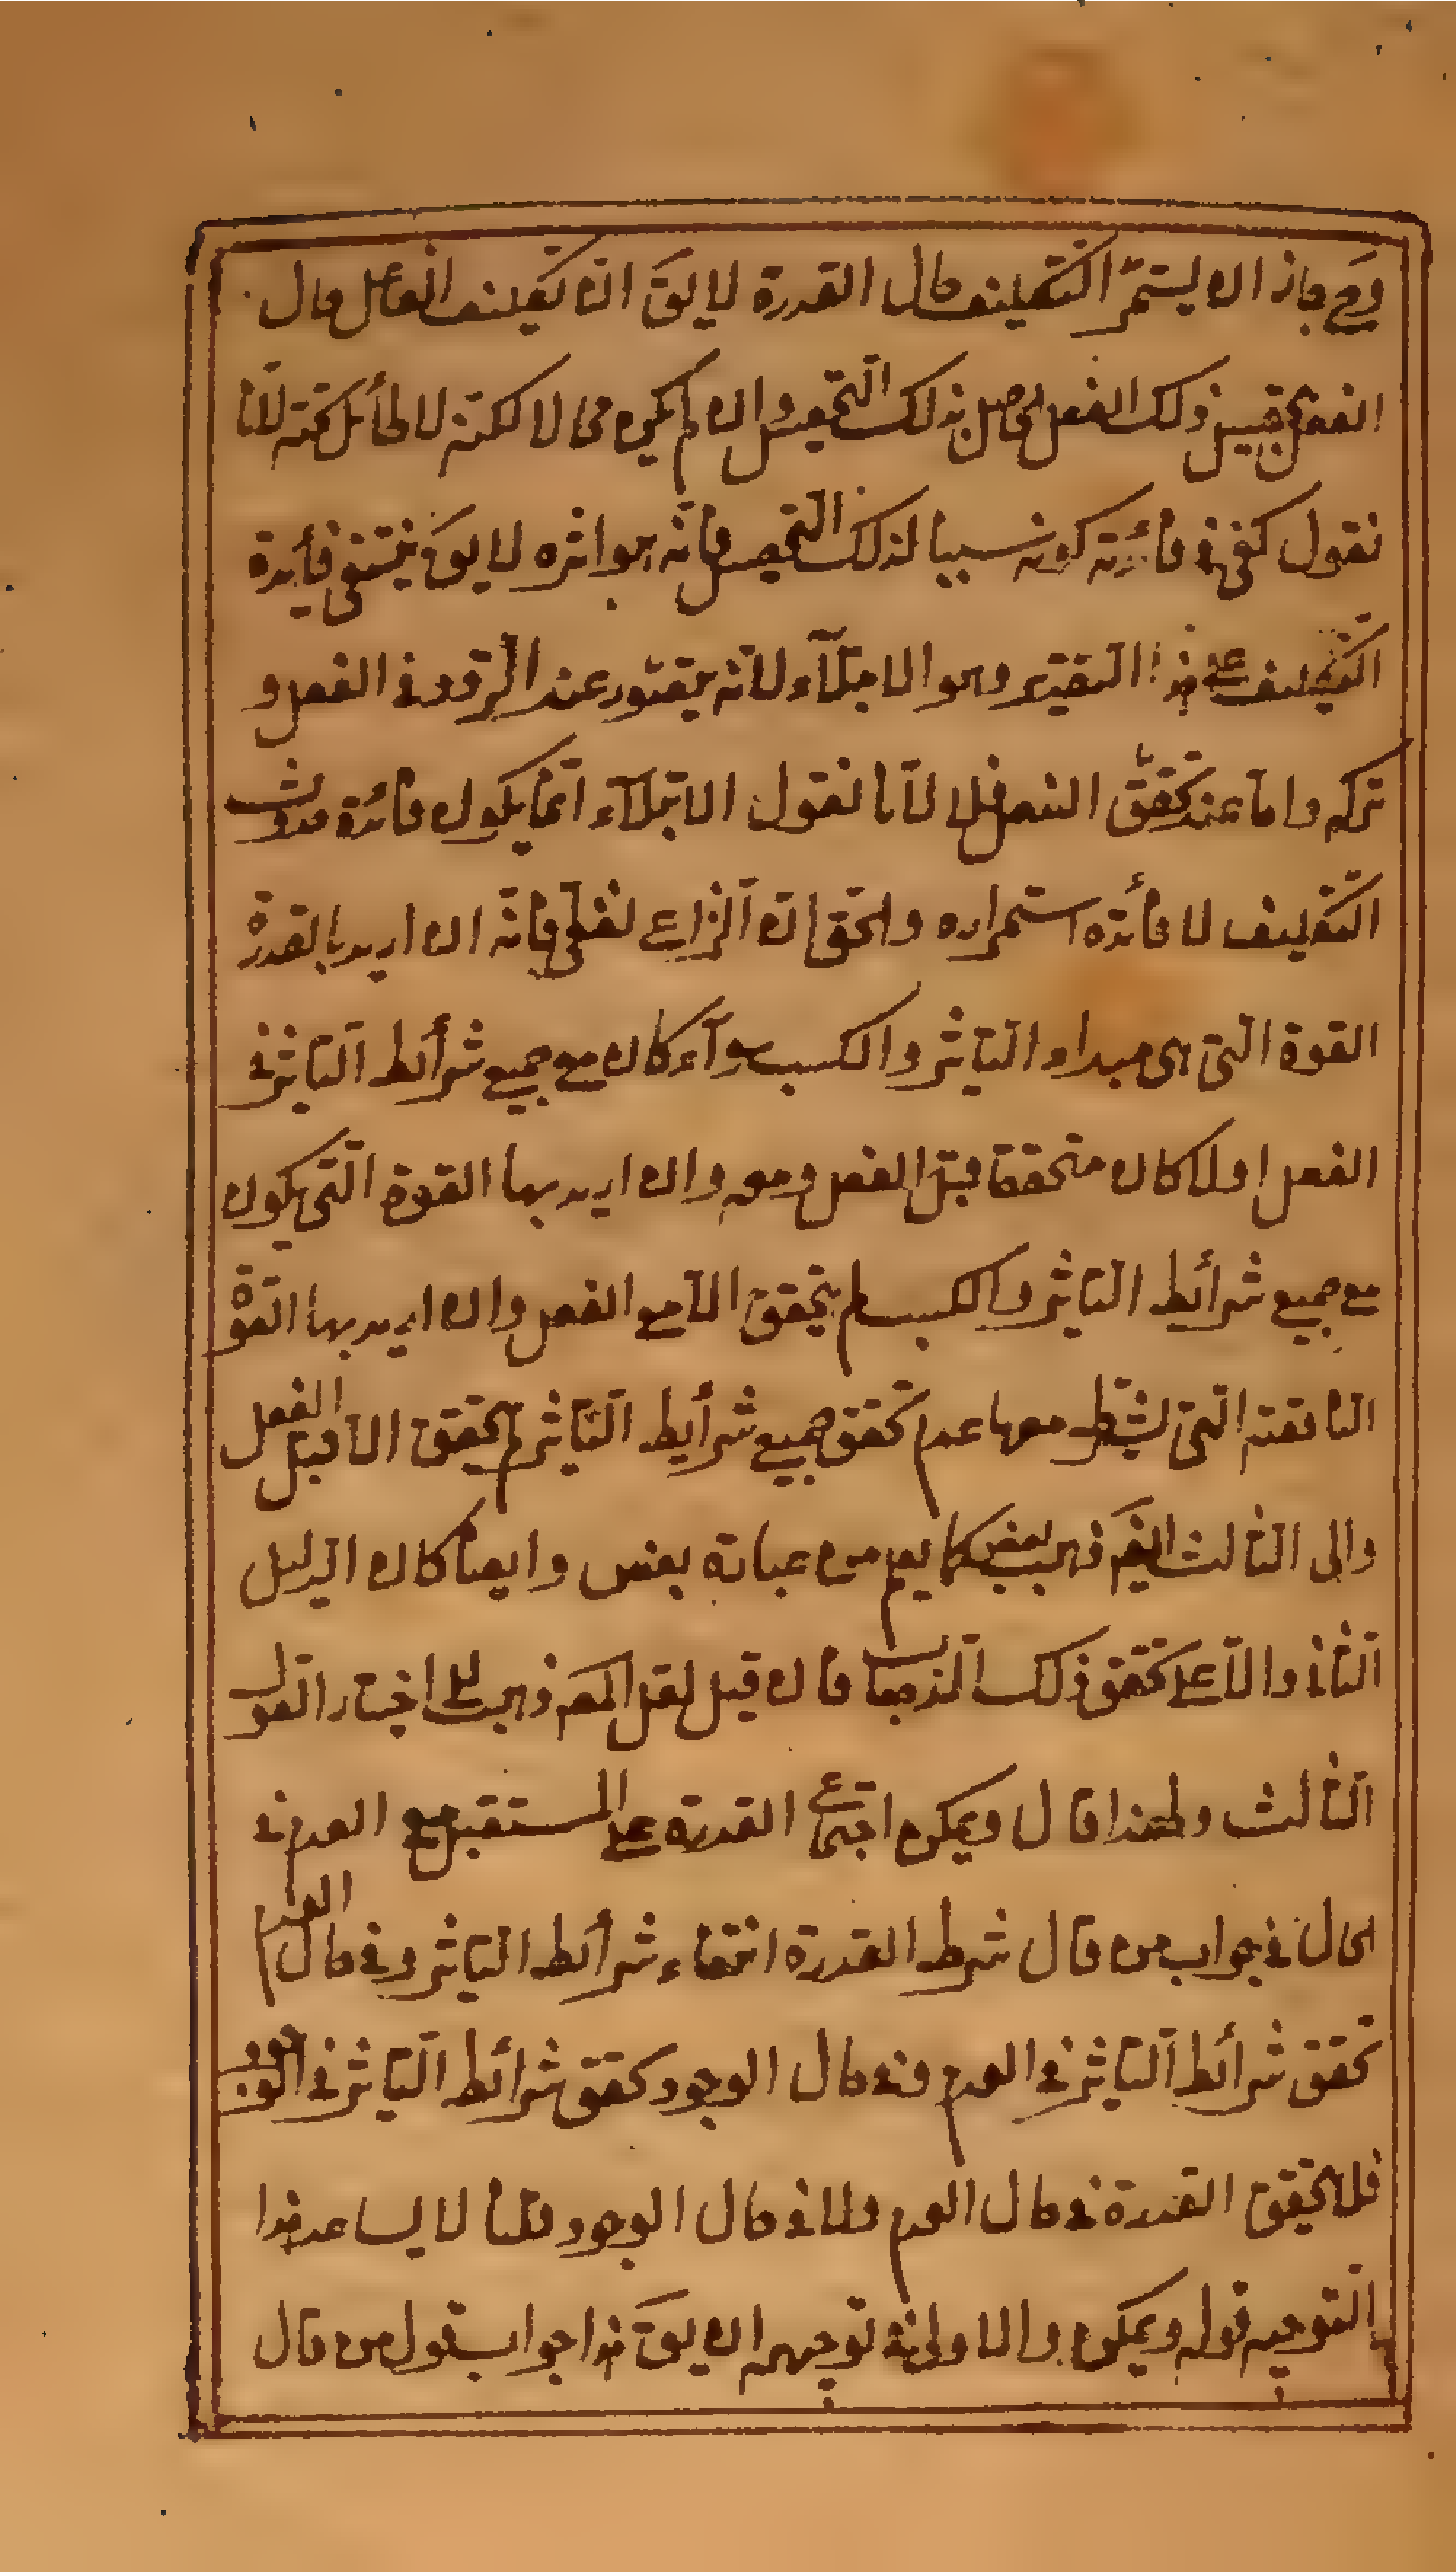 وح جاز ان يستمرّ التكليف حال القدرة لا يقَ انّ تكليف الفاعل حال
الفعل بتحصيل ذلك الفعل الحاصل بذلك التحصيل وان لم يكن محالا لكنّه لا طائل تحته لانّا
نقول كفى فى فائدته كونه سببا لذلك التحصيل فانّه هو اثره لا يقَ ينتفى فأيدة
التكليف على هذا التقدير وهو الابتلآء لانّه يتصّور عند التردد فى الفعل و
تركه وامّا عند تحققّ الفعل فلا لانّا نقول الابتلآء انّما يكون فائدة حدوث
التكليف لا فائدة استمراره والحق انّ النّزاع لفظى فانّه ان اريد بالقدرة
القوة الّتى هى مبداء التاثير والكسب سوآء كان مع جميع شرأئط التاثير فى
الفعل اولا كان متحققا قبل الفعل ومعه وان اريد بها القوة الّتى يكون
مع جميع شرأئط التاثير والكسب لم يتحقق الّا مع الفعل وان اريد بها القوّة
النّاقصة الّتى يشترط معها عدم تحقق جميع شرأيط التّاثير لم يتحقق الّا قبل الفعل
والى الثالث ايضَ ذهب بعض كما يعلم من عبارة بعض وايضا كان الدليل
الثّانى دالّا على تحقق ذلك المذهب فان قيل لعل المصَ ذهب الى اختيار القول
الثّالث ولهذا قال ويمكن اجتماع القدرة على المستقبل مع العدم فى
الحال فى جواب من قال شرط القدرة انتفاء شرأئط التاثير وفى حال العدم
تحقق شرأئط التاثير فى العدم وفى حال الوجود تحقق شرأئط التاثير فى الوجود
فلا يتحقق القدرة فى حال العدم ولا فى حال الوجود قلنا لا يساعد هذا
التوجيه قوله ويمكن والاولى فى توجيهه ان يقَ هذا جواب قول من قال